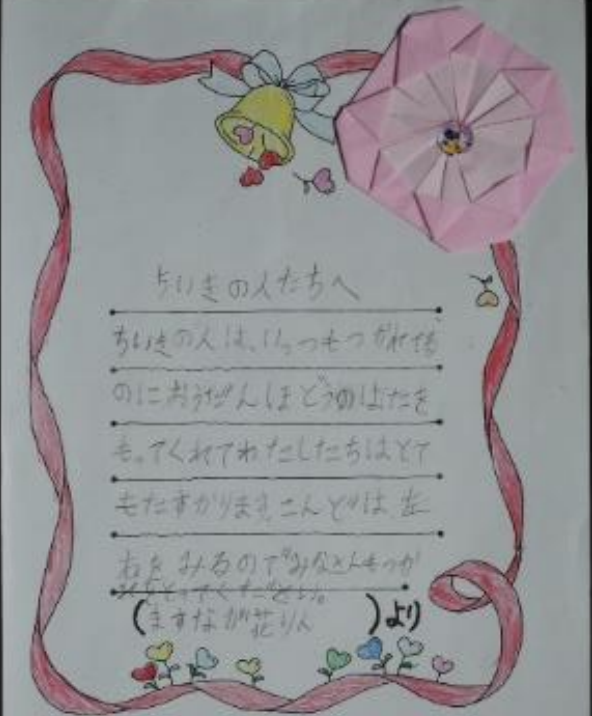 ちいきの人たちへ
ちいきの人は、いっつもつかれてる
のにおうだんほどうのはたを
もってくれてわたしたちはとて
もたすかります。こんどは、左
右をみるのでみなさんもつか
れをとってください。
(ますなが花りん)より